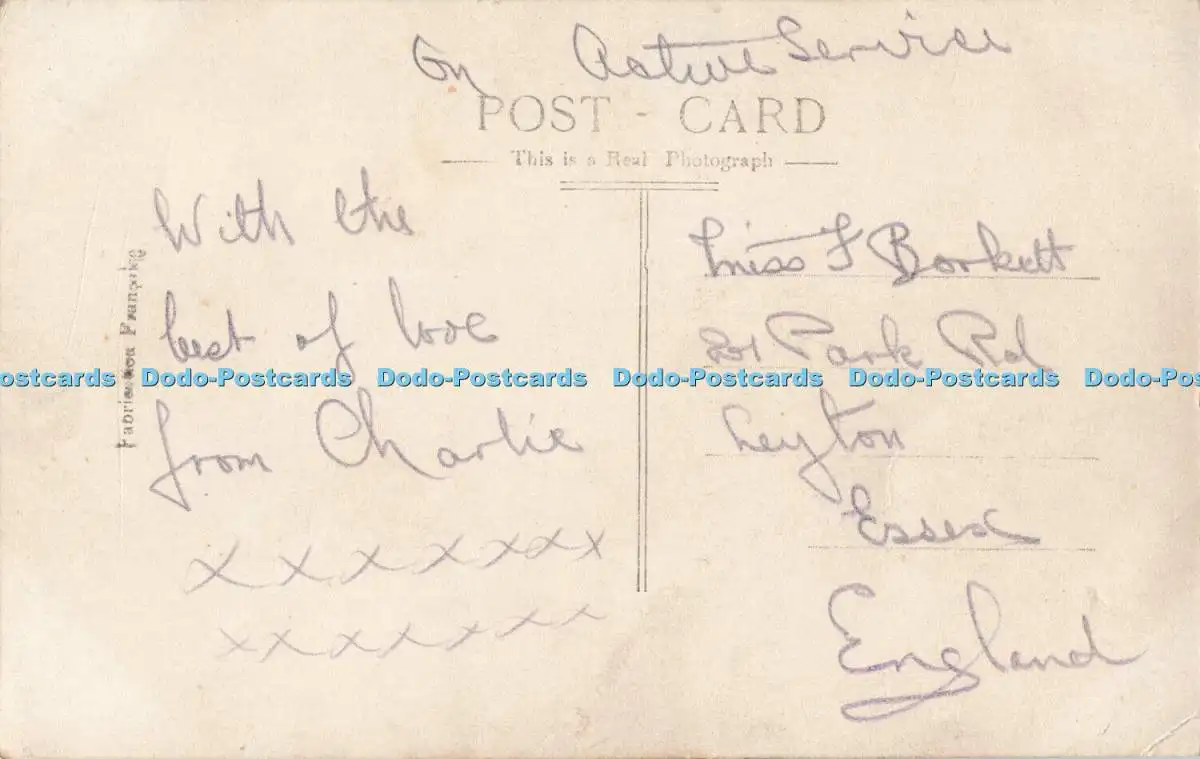 On Active Service
POST - CARD
This is a Real Photograph
With the
best of love
from Charlie
x x x x x x x
x x x x x x x
Fabrication Française
Miss F Borkett
201 Park Rd
Leyton
Essex
England
ostcards Dodo-Postcards Dodo-Postcards Dodo-Postcards Dodo-Postcards Dodo-Post